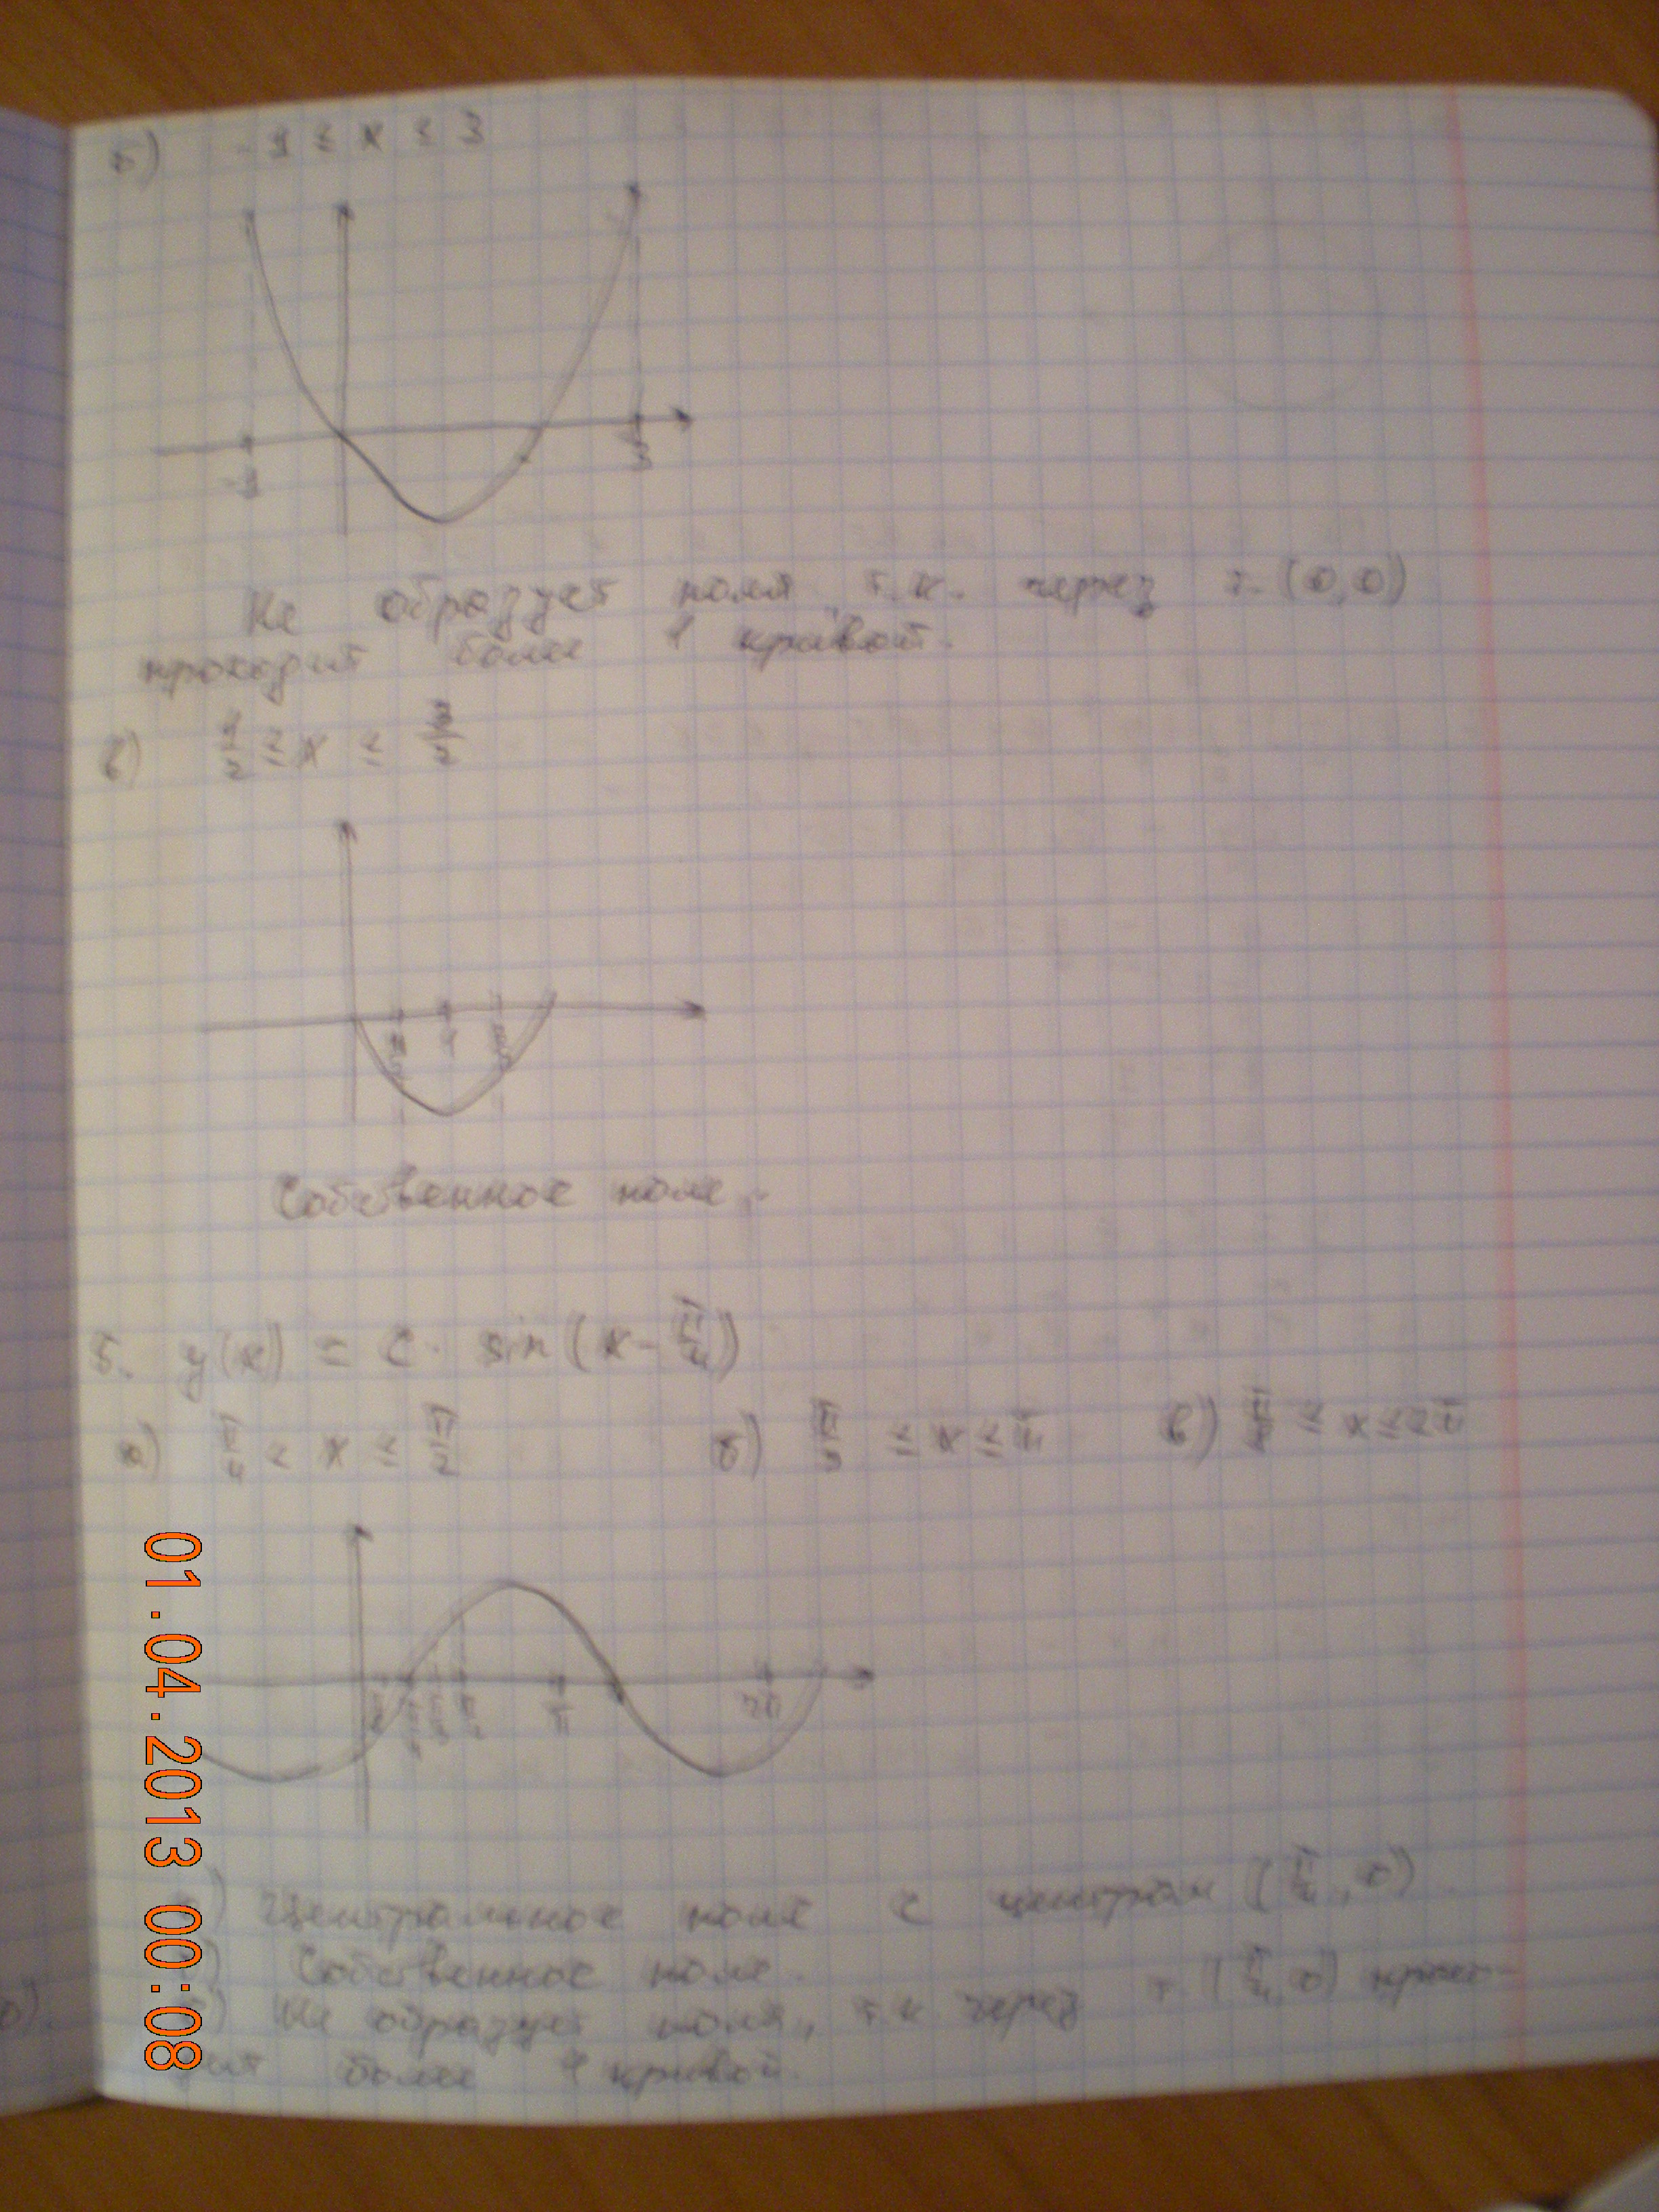 б) -1 ≤ x ≤ 3
-1 3
Не образует поля, т.к. через т. (0,0)
проходит более 1 кривой.
в) 1/2 ≤ x ≤ 3/2
1/2 1 3/2
Собственное поле.
5. y(x) = C · sin(x - π/4)
а) π/4 ≤ x ≤ π/2 б) π/3 ≤ x ≤ π в) ≤ x ≤ 2π
π/4 π/3 π/2 π 2π
) Центральное поле с центром (π/4, 0)
) Собственное поле.
) Не образует поля, т.к. через т. (π/4, 0) прохо-
дит более 1 кривой.
01.04.2013 00:08